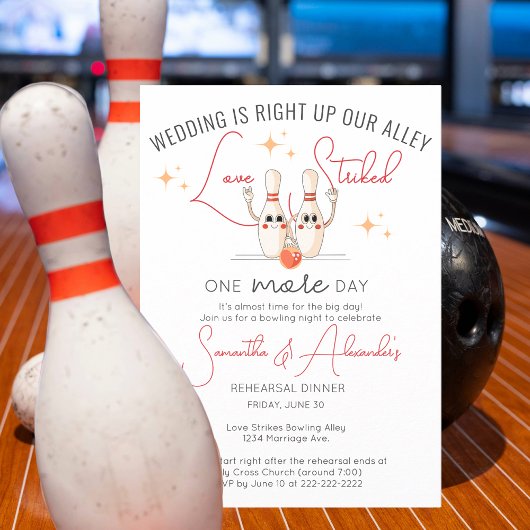 WEDDING IS RIGHT UP OUR ALLEY
Love Striked
ONE more DAY
It's almost time for the big day!
Join us for a bowling night to celebrate
Samantha & Alexander's
REHEARSAL DINNER
FRIDAY, JUNE 30
Love Strikes Bowling Alley
1234 Marriage Ave.
start right after the rehearsal ends at
Cross Church (around 7:00)
by June 10 at 222-222-2222
MEDIUM